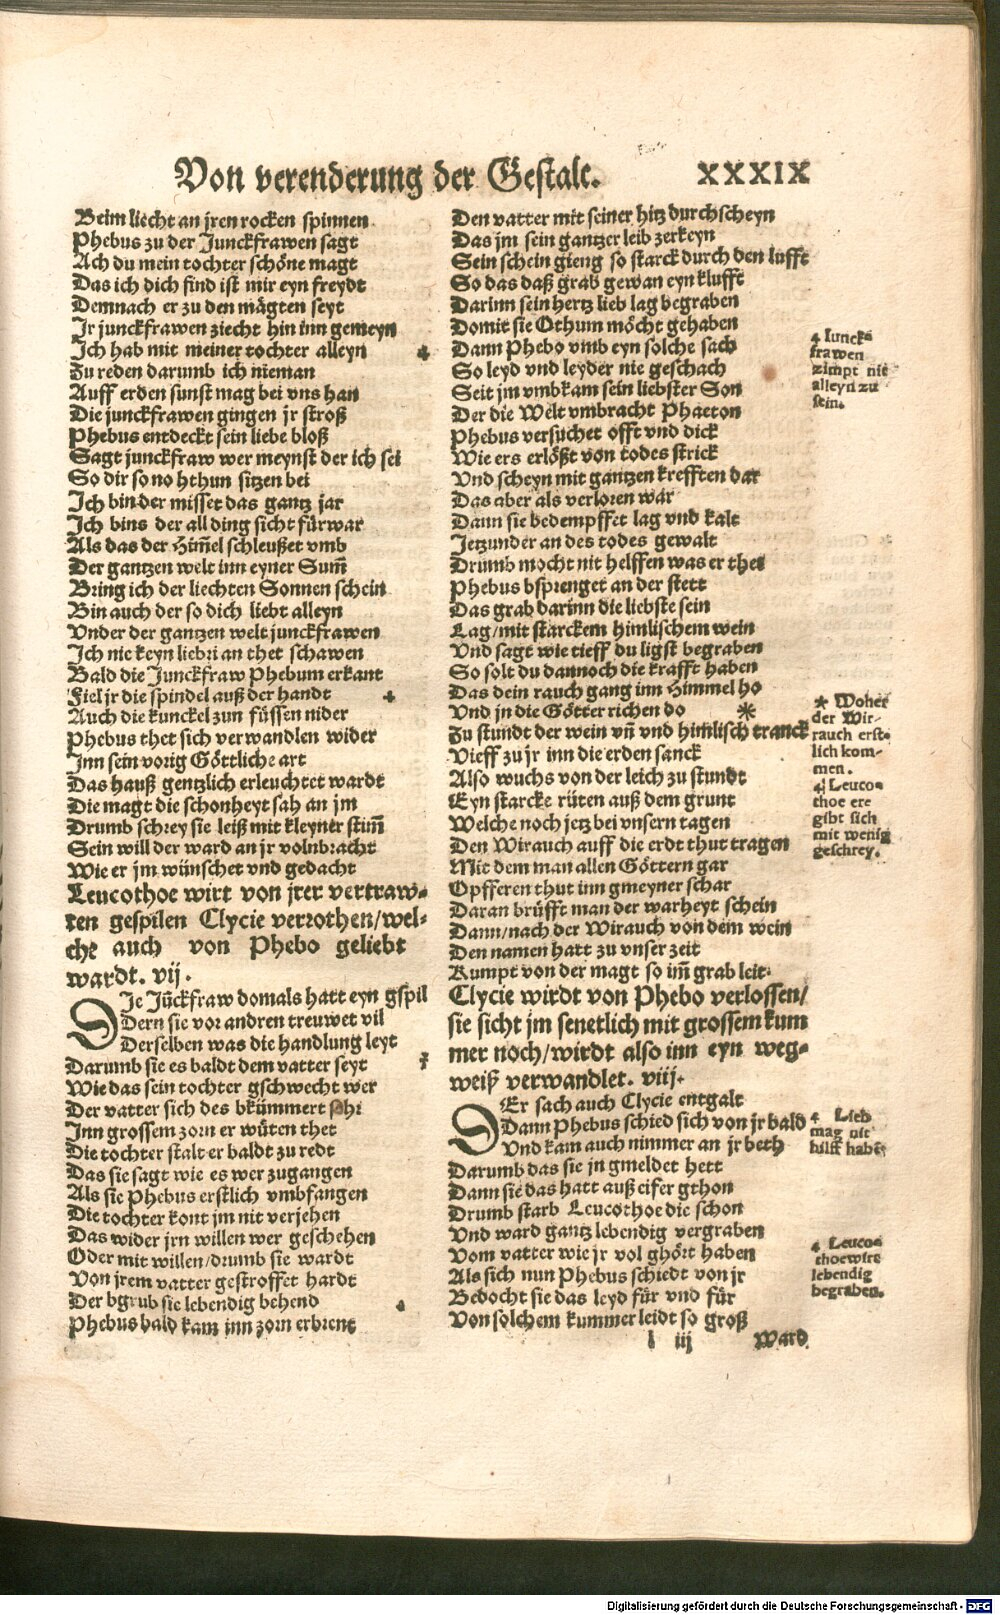 Von verenderung der Gestalt. XXXIX
Beim liecht an jren rocken spinnen
Phebus zu der Junckfrawen sagt
Ach du mein tochter schöne magt
Das ich dich find ist mir eyn freydt
Demnach er zu den mägten seyt
Ir junckfrawen ziecht hin inn gemeyn
Ich hab mit meiner tochter alleyn
Zu reden darumb ich nieman
Auff erden sunst mag bei vns han
Die junckfrawen gingen jr stroß
Phebus entdeckt sein liebe bloß
Sagt junckfraw wer meynst der ich sei
So dir so noh thun sitzen bei
Ich bin der misset das gantz jar
Ich bins der all ding sicht fürwar
Als das der Him̃el schleußet vmb
Der gantzen welt inn eyner Sum̃
Bring ich der liechten Sonnen schein
Bin auch der so dich liebt alleyn
Vnder der gantzen welt junckfrawen
Ich nie keyn liebri an thet schawen
Bald die Junckfraw Phebum erkant
Fiel jr die spindel auß der handt
Auch die kunckel zun füssen nider
Phebus thet sich verwandlen wider
Inn sein vorig Göttliche art
Das hauß gentzlich erleuchtet wardt
Die magt die schonheyt sah an jm
Drumb schrey sie leiß mit kleyner stim̃
Sein will der ward an jr volnbracht
Wie er jm wünschet vnd gedacht
Leucothoe wirt von jrer vertraw-
ten gespilen Clycie verrothen/wel-
che auch von Phebo geliebt
wardt. vij.
DIe Jũckfraw domals hatt eyn gspil
Dern sie vor andren treuwet vil
Derselben was die handlung leyt
Darumb sie es baldt dem vatter seyt
Wie das sein tochter gschwecht wer
Der vatter sich des bkümmert sehr
Inn grossem zorn er wüten thet
Die tochter stalt er baldt zu redt
Das sie sagt wie es wer zugangen
Als sie Phebus erstlich vmbfangen
Die tochter kont jm nit verjehen
Das wider jrn willen wer geschehen
Oder mit willen/drumb sie wardt
Von jrem vatter gestroffet hardt
Der bgrub sie lebendig behend
Phebus bald kam inn zorn erbrent
Den vatter mit seiner hitz durchscheyn
Das jm sein gantzer leib zerkeyn
Sein schein gieng so starck durch den lufft
So das daß grab gewan eyn klufft
Darinn sein hertz lieb lag begraben
Domit sie Othum möcht gehaben
Dann Phebo vmb eyn solche sach
So leyd vnd leyder nie geschach
Seit jm vmbkam sein liebster Son
Der die Welt vmbracht Phaeton
Phebus versuchet offt vnd dick
Wie ers erlößt von todes strick
Vnd scheyn mit gantzen krefften dar
Das aber als verloren war
Dann sie bedempffet lag vnd kalt
Jetzunder an des todes gewalt
Drumb mocht nit helffen was er thet
Phebus bsprenget an der stett
Das grab darinn die liebste sein
Lag/mit starckem himlischem wein
Vnd sagt wie tieff du ligst begraben
So solt du dannoch die krafft haben
Das dein rauch gang inn Himmel ho
Vnd jn die Götter richen do *
Zu stundt der wein vñ vnd himlisch tranck
Vieff zu jr inn die erden sanck
Also wuchs von der leich zu stundt
Eyn starcke rüten auß dem grunt
Welche noch jetz bei vnsern tagen
Den Wirauch auff die erdt thut tragen
Mit dem man allen Göttern gar
Opfferen thut inn gmeyner schar
Daran brüfft man der warheyt schein
Dann/nach der Wirauch von dem wein
Den namen hatt zu vnser zeit
Kumpt von der magt so im̃ grab leit.
Clycie wirdt von Phebo verlossen/
sie sicht jm senetlich mit grossem kum
mer noch/wirdt also inn eyn weg-
weiß verwandlet. viij.
DEr sach auch Clycie entgalt
Dann Phebus schied sich von jr bald
Vnd kam auch nimmer an jr beth
Darumb das sie jn gmeldet hett
Dann sie das hatt auß eifer gthon
Drumb starb Leucothoe die schon
Vnd ward gantz lebendig vergraben
Vom vatter wie jr vol ghört haben
Als sich nun Phebus schiedt von jr
Bedocht sie das leyd für vnd für
Von solchem kummer leidt so groß
l iij Ward
Iunck-
frawen
zimpt nit
alleyn zu
sein.
* Woher
der Wir-
rauch erst-
lich kom-
men.
Leuco-
thoe ere
gibt sich
mit wenig
geschrey.
Lieb
mag nit
hilff habẽ.
Leuco-
thoe wirt
lebendig
begraben.
Digitalisierung gefördert durch die Deutsche Forschungsgemeinschaft - DFG